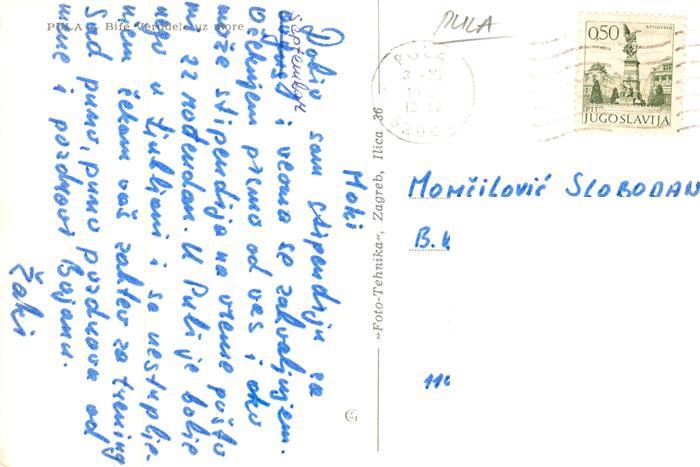 PULA – Bife Verudela uz more
Moki
Dobio sam stipendiju za
avgust
septembar
i veoma se zahvaljujem.
Očekujem pismo od vas i ako
može stipendija na vreme pošto
mi za rođendan. U Puli je bolje
nego u Ljubljani i sa nestrplje-
njem čekam vaš zahtev za trening
Sad puno, puno pozdrava od
mene i pozdravi Bojanu.
Žaki
»Foto-Tehnika«, Zagreb, Ilica 36
PULA
PULA
0,50
PTT
JUGOSLAVIJA
MOMČILOVIĆ SLOBODAN
B.
11